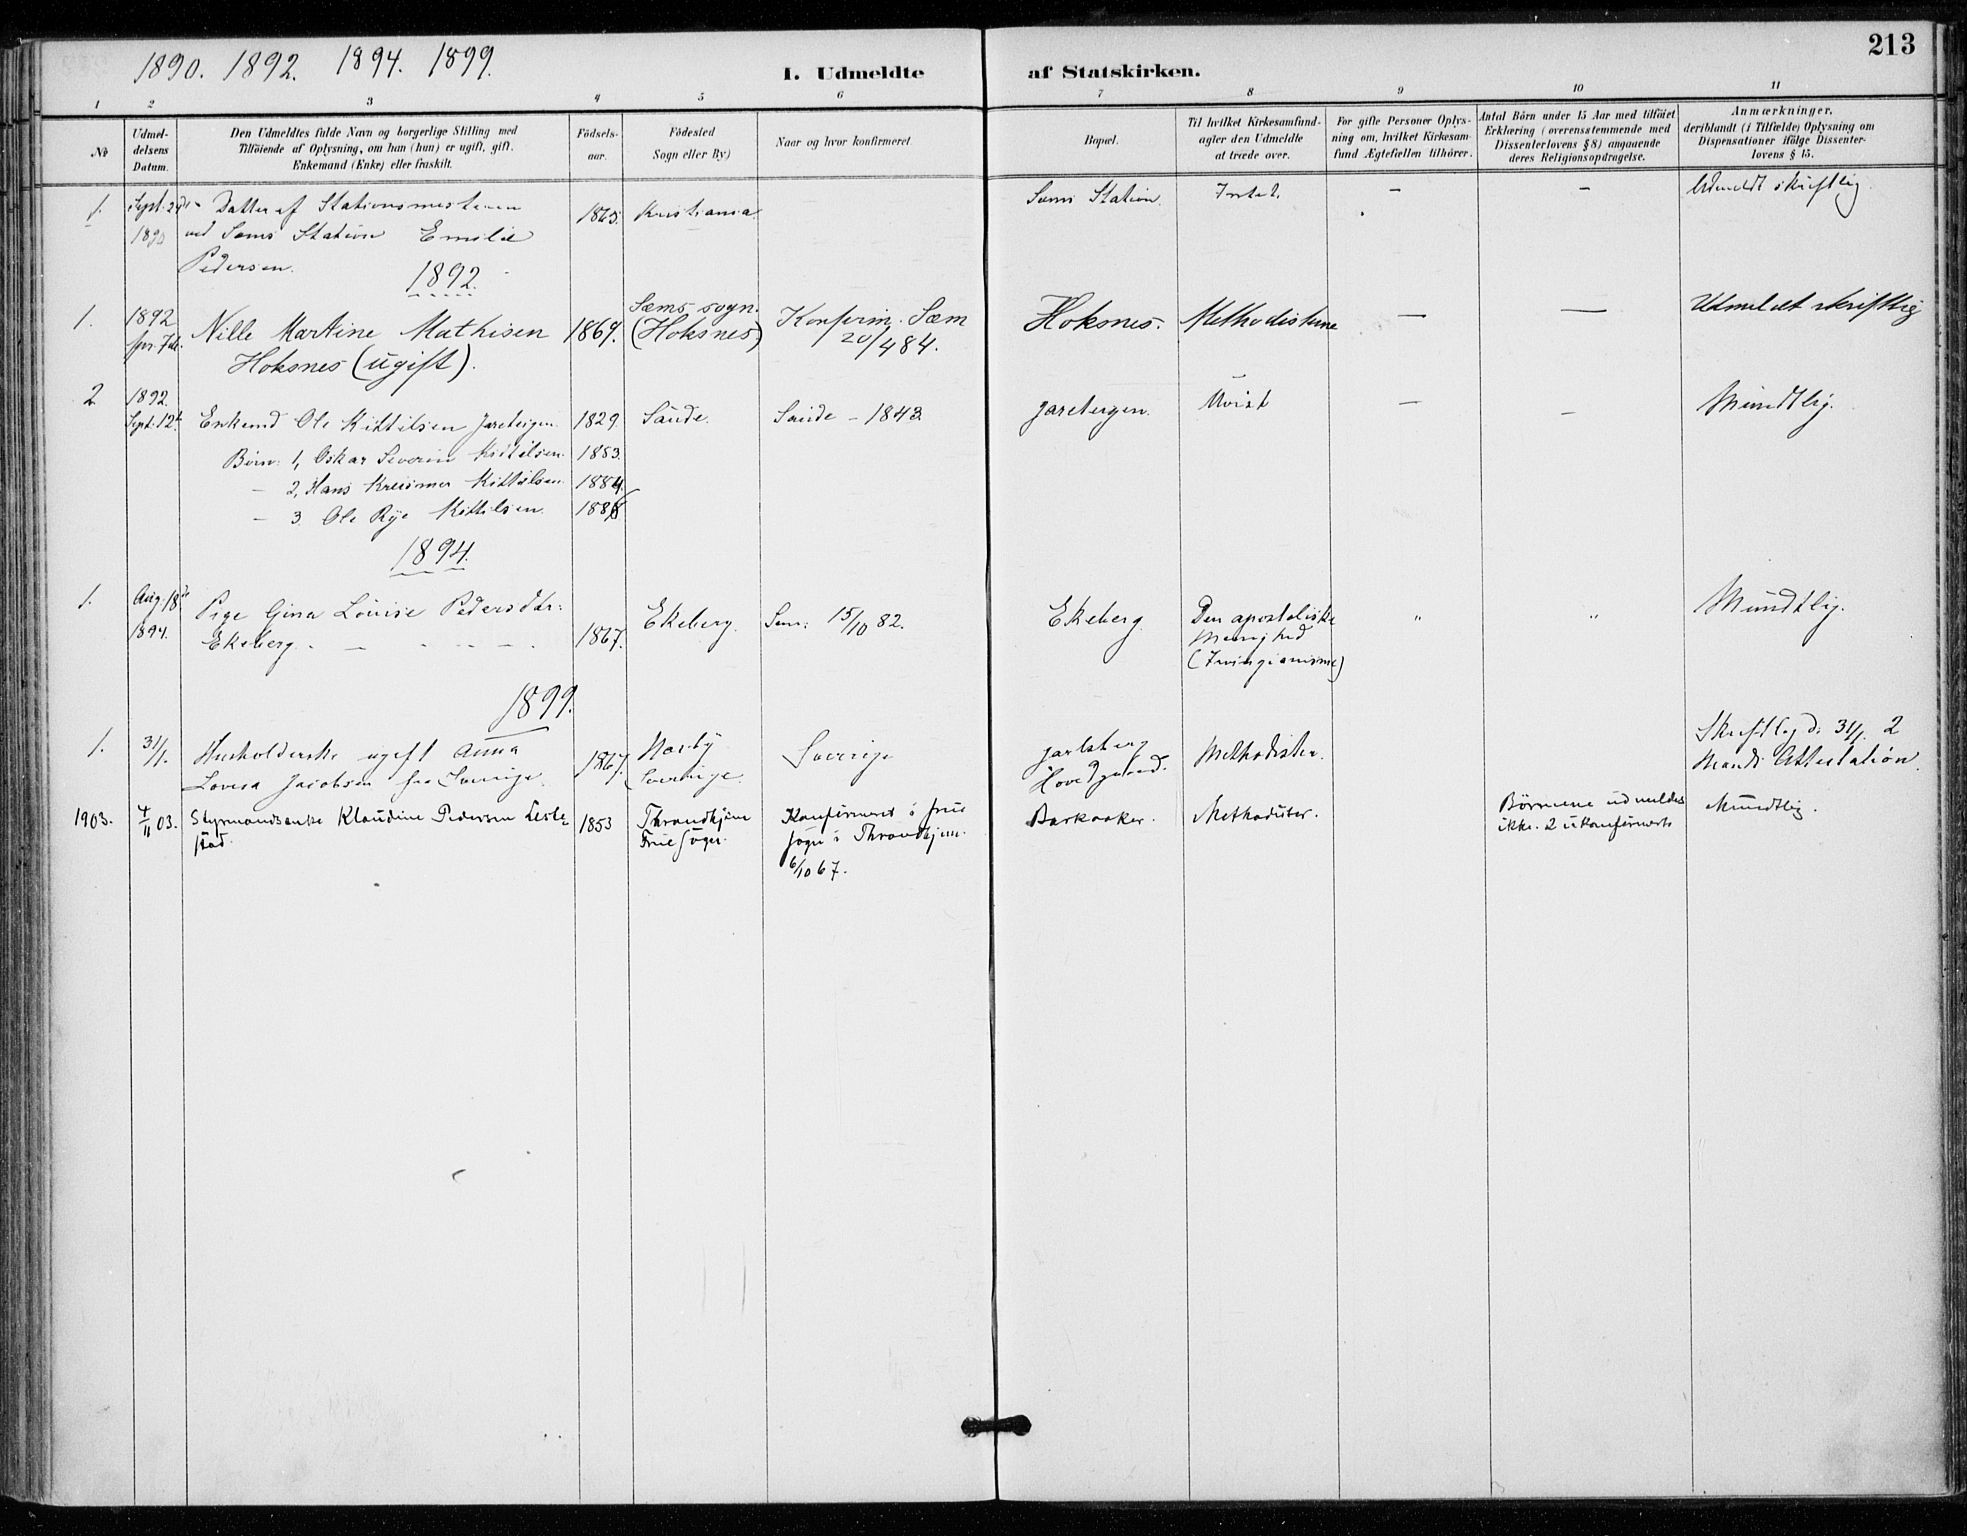 1890. 1892. 1894. 1899.
I. Udmeldte af Statskirken.
213
1 2 3 4 5 6 7 8 9 10 11
No
Udmel-
delsens
Datum.
Den Udmeldtes fulde Navn og borgerlige Stilling med
Tilføiende af Oplysning, om han (hun) er ugift, gift,
Enkemand (Enke) eller fraskilt.
Fødsels-
aar.
Fødested
Sogn eller By)
Naar og hvor konfirmeret.
Bopæl.
Til hvilket Kirkesamfund-
agter den Udmeldte
at træde over.
For gifte Personer Oplys-
ning om, hvilket Kirkesam-
fund Ægtefællen tilhører.
Antal Børn under 15 Aar med tilføiet
Erklæring (overensstemmende med
Dissenterlovens § 8) angaaende
deres Religionsopdragelse.
Anmærkninger,
deriblandt (i Tilfælde) Oplysning om
Dispensationer ifølge Dissenter-
lovens § 15.
1. Sept. 24de Datter af Stationsmesteren 1865. Kristiania. Sems Station. Intet. – – Udmeldt skriftlig
1890 ved Sems Station Emilie
Pedersen.
1892.
1. 1892 Nille Martine Mathisen 1869. Sæms sogn. Konfirm. Sæm Hoksnes. Methodisterne — — Udmeldt skriftlig
Hoksnes (ugift). (Hoksnes) 20/4 84.
2 1892.
Sept. 12t Enkemd Ole Kittilsen Jarebergen. 1829. Saude. Saude – 1843. Jarebergen. Uvist — – Mundtlig.
Børn: 1, Oskar Severin Kittilsen. 1883.
– 2, Hans Kittilsen. 1884
– 3. Ole Rye Kittilsen. 188
1894.
1. Aug. 18de Pige Gina Louise Pedersdtr: Ekeberg. Sem: 15/10 82. Ekeberg Den apostoliske " " Mundtlig.
1894. Ekeberg. 1867. Menighed
(Irvingianisme)
1899.
1. 31/1. Husholderske ugift Anna 1867. Sverige Jarlsberg Methodister. Skriftlig d. 31/1. 2
Lovisa Jacobsen fra Sverige. Sverrige. Hovedgaard. Mands Attestation.
1903. 4/11 03. Styrmandsenke Klaudine Pedersen Leste- 1853 Throndhjem Konfirmeret i Frue Barkaaker. Methodister. Børnene udmeldes Mundtlig.
stad. Frue Sogn. Sogn i Throndhjem. ikke. 2 ukonfirmerte
6/10 67.